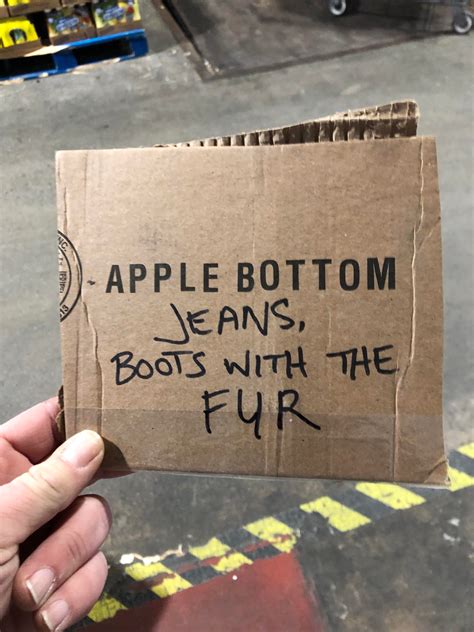 APPLE BOTTOM
JEANS,
BOOTS WITH THE
FUR